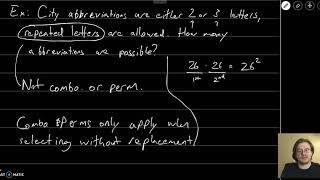 Ex: City abbreviations are either 2 or 3 letters,
repeated letters are allowed. How many
abbreviations are possible?
26 · 26 = 26²
1st 2nd
Not combo. or perm.
Combo & Perms only apply when
selecting without replacement